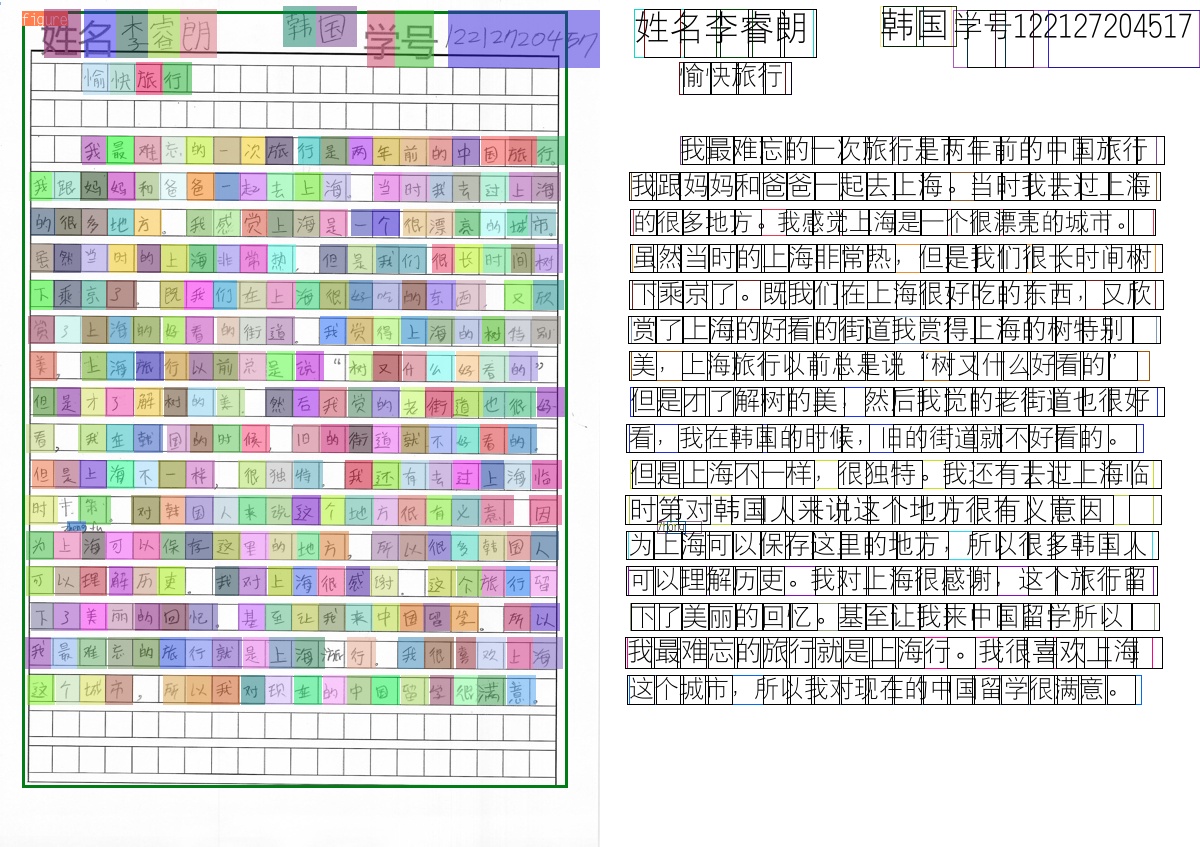 figure
姓名 李睿朗 韩国 学号 122127204517
愉快旅行
我最难忘的一次旅行是两年前的中国旅行。
我跟妈妈和爸爸一起去上海。当时我去过上海
的很多地方。我感觉上海是一个很漂亮的城市。
虽然当时的上海非常热，但是我们很长时间树
下乘京了。既我们在上海很好吃的东西，又欣
赏了上海的好看的街道。我觉得上海的树特别
美，上海旅行以前总是说“树又什么好看的”
但是才了解树的美，然后我觉的老街道也很好
看，我在韩国的时候，旧的街道就不好看的。
但是上海不一样，很独特。我还有去过上海临
时 第。对韩国人来说这个地方很有义意 因
为上海可以保存这里的地方，所以很多韩国人
可以理解历史。我对上海很感谢，这个旅行留
下了美丽的回忆。基至让我来中国留学。所以
我最难忘的旅行就是上海旅行。我很喜欢上海
这个城市，所以我对现在的中国留学很满意。
姓名李睿朗 韩国 学号122127204517
愉快旅行
我最难忘的一次旅行是两年前的中国旅行
我跟妈妈和爸爸一起去上海。当时我去过上海
的很多地方。我感觉上海是一个很漂亮的城市。
虽然当时的上海非常热，但是我们很长时间树
下乘京了。既我们在上海很好吃的东西，又欣
赏了上海的好看的街道我赏得上海的树特别
美，上海旅行以前总是说“树又什么好看的”
但是才了解树的美，然后我觉的老街道也很好
看，我在韩国的时候，旧的街道就不好看的。
但是上海不一样，很独特。我还有去过上海临
时第对韩国人来说这个地方很有义意因
为上海可以保存这里的地方，所以很多韩国人
可以理解历史。我对上海很感谢，这个旅行留
下了美丽的回忆。基至让我来中国留学所以
我最难忘的旅行就是上海行。我很喜欢上海
这个城市，所以我对现在的中国留学很满意。